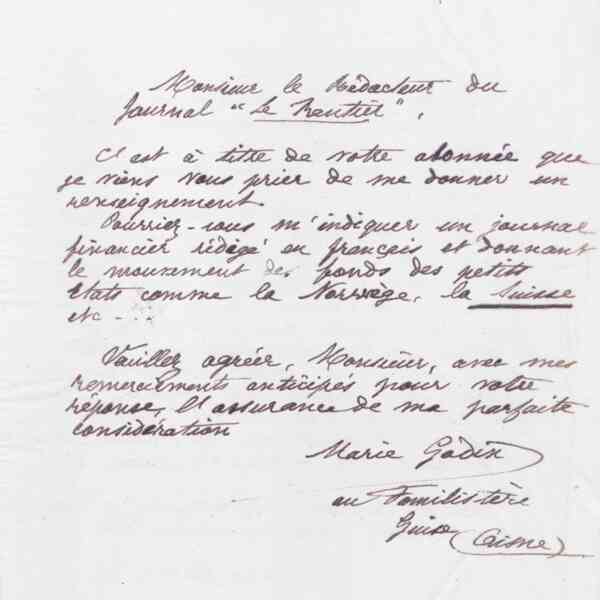 Monsieur le Rédacteur du
Journal "Le Rentier",
C'est à titre de votre abonnée que
je viens vous prier de me donner un
renseignement.
Pourriez-vous m'indiquer un journal
financier rédigé en français et donnant
le mouvement des fonds des petits
Etats comme la Norwège, la Suisse
etc...
Veuillez agréer, Monsieur, avec mes
remerciements anticipés pour votre
réponse, l'assurance de ma parfaite
considération
Marie Godin
au Familistère
Guise (Aisne)